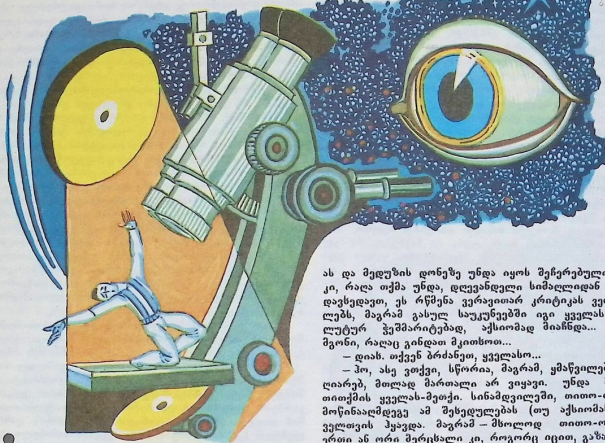 ას და მედუზის დონეზე უნდა იყოს შეჩერებული
კი, რაღა თქმა უნდა, დღევანდელი სიმაღლიდან
დავსედავთ, ეს რწმენა ვერავითარ კრიტიკას ვე
ლებს, მაგრამ გასულ საუკუნეებში იგი ყველას
ლუტურ ჭეშმარიტებად, აქსიომად მიაჩნდა...
მგონი, რაღაც გინდათ მკითხოთ...
— დიახ. თქვენ ბრძანეთ, ყველასო...
— ჰო, ასე ვთქვი, სწორია, მაგრამ, ყმაწვილებ
ღიარებ, მთლად მართალი არ ვიყავი. უნდა
თითქმის ყველას-მეთქი. სინამდვილეში, თითო-ო
მოწინააღმდეგე ამ შეხედულებას (თუ აქსიომა
ველთვის ჰყავდა. მაგრამ — მხოლოდ თითო-ო
ერთი ან ორი მერცხალი კი, როგორც იცით, გაზა